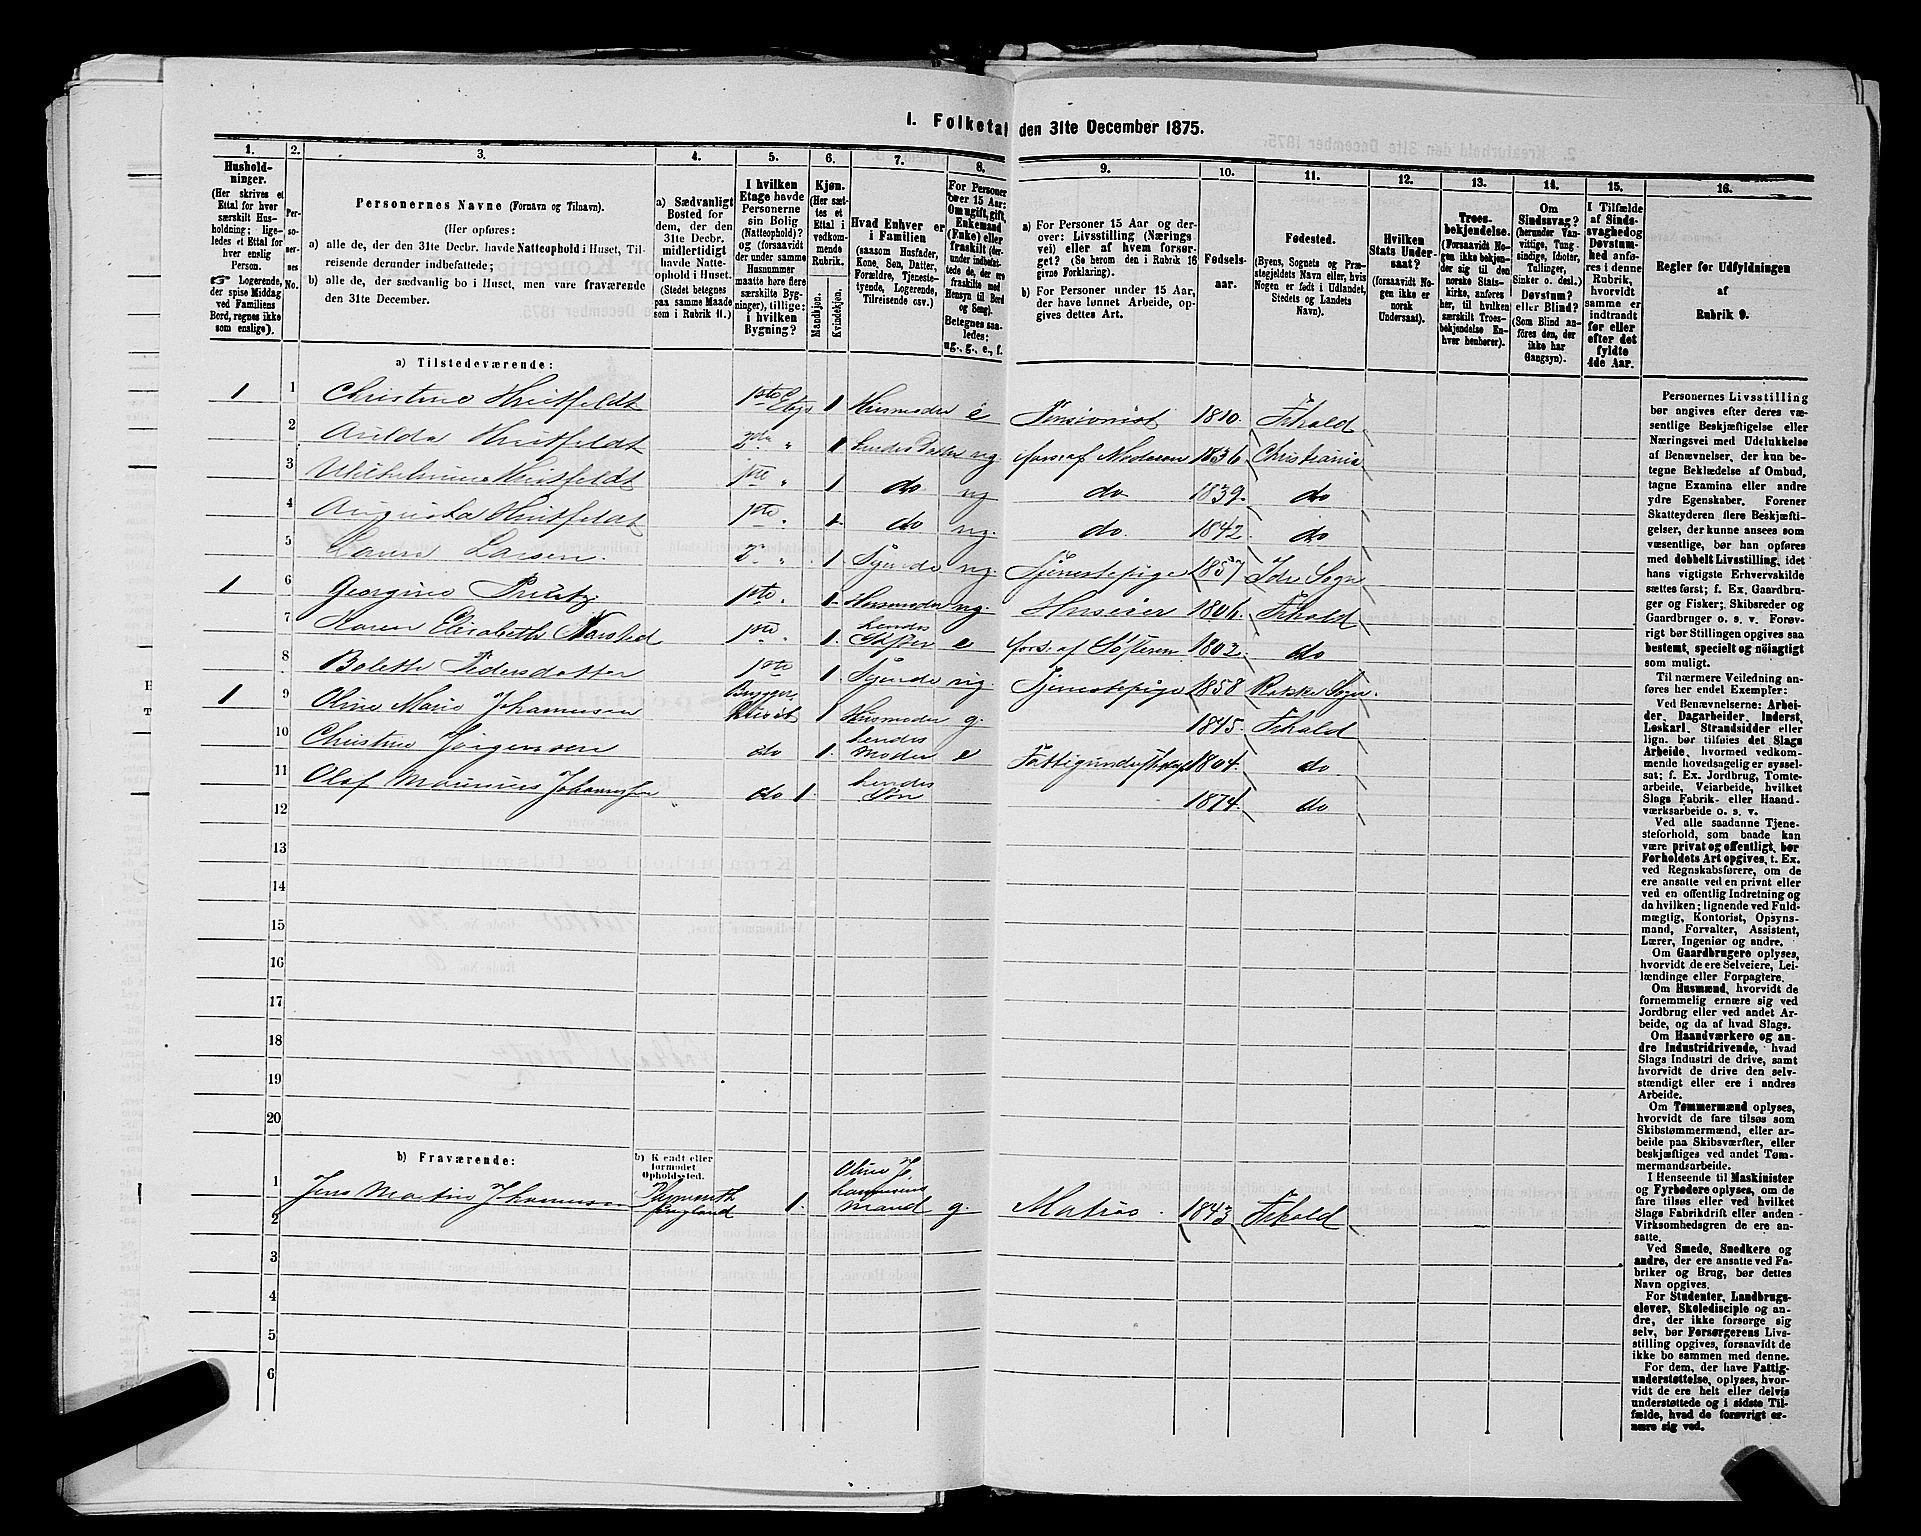 1. Folketal den 31te December 1875.
1. 2. 3. 4. 5. 6. 7. 8. 9. 10. 11. 12. 13. 14. 15. 16.
Hushold-
ninger.
(Her skrives et
Ettal for hver
særskilt Hus-
holdning; lige-
ledes et Ettal for
hver enslig
Person.
Logerende,
der spise Middag
ved Familiens
Bord, regnes ikke
som enslige).
Per-
so-
ner-
nes
No.
Personernes Navne (Fornavn og Tilnavn).
(Her opføres:
a) alle de, der den 31te Decbr. havde Natteophold i Huset, Til-
reisende derunder indbefattede;
b) alle de, der sædvanlig bo i Huset, men vare fraværende
den 31te December.
a) Sædvanligt
Bosted for
dem, der den
31te Decbr.
midlertidigt
havde Natte-
ophold i Huset.
(Stedet betegnes
paa samme Maade
som i Rubrik 11.)
I hvilken
Etage havde
Personerne
sin Bolig
(Natteophold)?
og (forsaavidt
der under samme
Husnummer
maatte høre flere
særskilte Byg-
ninger), tillige:
i hvilken
Bygning?
Kjøn.
(Her sæt-
tes et
Ettal i
vedkom-
mende
Rubrik.
Mandkjøn.
Kvindekjøn.
Hvad Enhver er
i Familien
(saasom Husfader,
Kone, Søn, Datter,
Forældre, Tjeneste-
tyende, Logerende,
Tilreisende osv.)
For Personer
over 15 Aar:
Om ugift, gift,
Enkemand
(Enke) eller
fraskilt (der-
under indbefat-
tede de, der ere
fraskilte med
Hensyn til Bord
og Seng).
Betegnes saa-
ledes:
ug., g., e., f.
a) For Personer 15 Aar og der-
over: Livsstilling (Nærings
vei) eller af hvem forsør-
get? (Se herom den i Rubrik 16
givne Forklaring).
b) For Personer under 15 Aar,
der have lønnet Arbeide, op-
gives dettes Art.
Fødsels-
aar.
Fødested.
(Byens, Sognets og Præ-
stegjeldets Navn eller, hvis
Nogen er født i Udlandet,
Stedets og Landets
Navn).
Hvilken
Stats Under-
saat?
(forsaavidt No-
gen ikke er
norsk
Undersaat).
Troes-
bekjendelse.
(Forsaavidt No-
gen ikke bekjen-
der sig til den
norske Stats-
kirke, anføres
her, til hvilken
særskilt Troes-
bekjendelse En-
hver henhører).
Om
Sindssvag?
(herunder Van-
vittige, Tung-
sindige, Idioter,
Tullinger,
Sinker o. desl.)
Døvstum?
eller Blind?
(Som Blind an-
føres den, der
ikke har
Gangsyn).
I Tilfælde
af Sinds-
svaghed og
Døvstum-
hed anfø-
res i denne
Rubrik,
hvorvidt
samme er
indtraadt
før eller
efter det
fyldte
4de Aar.
Regler for Udfyldningen
af
Rubrik 9.
a) Tilstedeværende:
1 1 Christine Huitfeldt 1ste Etage 1 Husmoder e Pensionist 1810. Fhald
2 Hulda Huitfeldt 2den " 1 hendes Datter ug fors. af Moderen 1836 Christiania
3 Wilhelmine Huitfeldt 1ste " 1 do ug do 1839. do
4 Augusta Huitfeldt 1ste " 1 do ug. do. 1842 do
5 Laura Larsen. 2 " 1 Tyende ug. Tjenestepige 1857 Ide Sogn
1 6 Georgine 1ste 1 Husmoder ug. Huseier 1806. Fhald
7 Karen Elisabeth 1ste " 1. hendes Søster e fors. af Søsteren 1802. do
8 Bolette Pedersdatter 1ste 1. Tyende ug Tjenestepige 1858 Rakke Sogn.
1 9 Oline Marie Johannesen 1 Husmoder g. 1845. Fhald
10 Christine Jørgensen do 1. hendes Moder e Fattigunderstøttet 1804. do
11 Olaf Johannesen do 1. hendes Søn 1874. do
12
13
14
15
16
17
18
19
20
b) Fraværende:
b) Kjendt eller
formodet
Opholdssted.
1 Jens Martin Johannesen Plymouth England 1. Oline Johannesens Mand g. Matros. 1843 Fhald
2
3
4
5
6
Personernes Livsstilling
bør angives efter deres væ-
sentlige Beskjæftigelse eller
Næringsvei med Udelukkelse
af Benævnelser, der kun be-
tegne Beklædelse af Ombud,
tagne Examina eller andre
ydre Egenskaber. Forener
Skatteyderen flere Beskjæfti-
gelser, der kunne ansees som
væsentlige, bør han opføres
med dobbelt Livsstilling, idet
hans vigtigste Erhvervskilde
sættes først; f. Ex. Gaardbru-
ger og Fisker; Skibsreder og
Gaardbruger o. s. v. Forøv-
rigt bør Stillingen opgives saa
bestemt, specielt og nøiagtigt
som muligt.
Til nærmere Veiledning an-
føres her endel Exempler:
Ved Benævnelserne: Arbei-
der, Dagarbeider, Inderst,
Løskarl, Strandsidder eller
lign. bør tilføies det Slags
Arbeide, hvormed vedkom-
mende hovedsagelig er syssel-
sat; f. Ex. Jordbrug, Tomte-
arbeide, Veiarbeide, hvilket
Slags Fabrik- eller Haand-
værksarbeide o. s. v.
Ved alle saadanne Tje-
nesteforhold, som baade kan
være privat og offentligt, bør
Forholdets Art opgives, t. Ex.
ved Regnskabsførere, om de
ere ansatte ved en privat eller
ved en offentlig Indretning og
da hvilken; lignende ved Fuld-
mægtig, Kontorist, Opsyns-
mand, Forvalter, Assistent,
Lærer, Ingeniør og andre.
Om Gaardbrugere oplyses,
hvorvidt de ere Selveiere, Lei-
lændinge eller Forpagtere.
Om Husmænd, hvorvidt de
fornemmelig ernære sig ved
Jordbrug eller ved andet Ar-
beide, og da af hvad Slags.
Om Haandværkere og an-
dre Industridrivende, hvad
Slags Industri de drive, samt
hvorvidt de drive den selv-
stændigt eller ere i andres
Arbeide.
Om Tømmermænd oplyses,
hvorvidt de fare tilsøs som
Skibstømmermænd, eller ar-
beide paa Skibsværfter, eller
beskjæftiges ved andet Tøm-
mermandsarbeide.
I Henseende til Maskinister
og Fyrbødere oplyses, om de
fare tilsøs eller ved hvilket
Slags Fabrikdrift eller anden
Virksomhedsgren de ere an-
satte.
Ved Smede, Snedkere og
andre, der ere ansatte ved Fa-
briker og Brug, bør dettes
Navn opgives.
For Studenter, Landbrugs-
elever, Skoledisciple og an-
dre, der ikke forsørge sig
selv, bør Forsørgerens Livs-
stilling opgives, forsaavidt de
ikke bo sammen med denne.
For dem, der have Fattig-
understøttelse, oplyses, hvor-
vidt de ere helt eller delvis
understøttede og i sidste Til-
fælde, hvad de forøvrigt er-
nære sig ved.